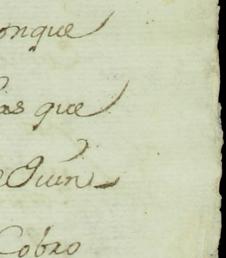 onque
as que
Quin
Cobro